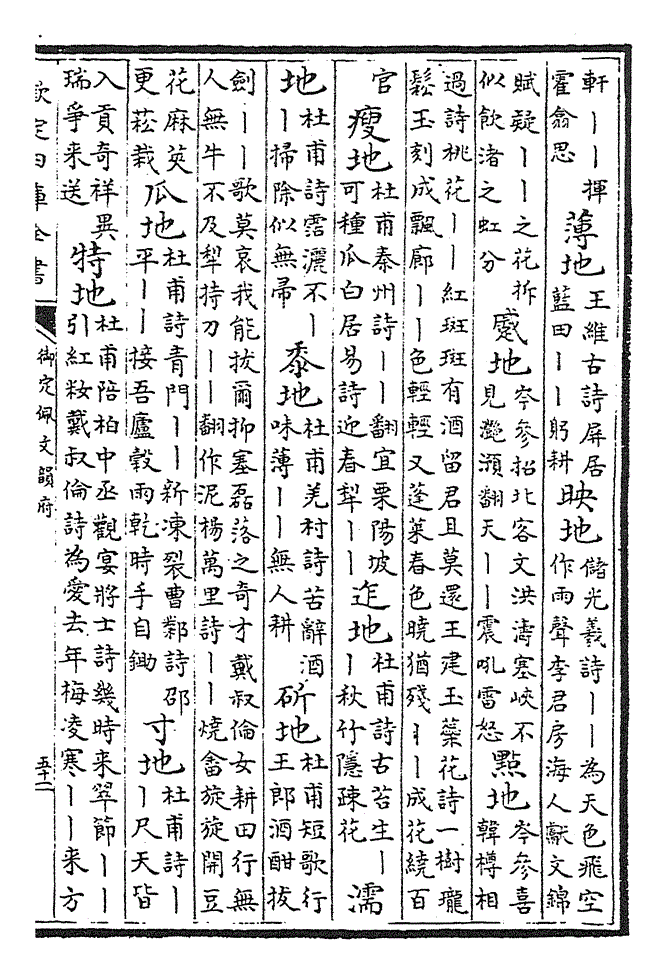 軒丨丨揮霍翕思 薄地 王維古詩屏居藍田丨丨躬耕 映地 儲光羲詩丨丨為天色飛空作雨聲李君房海人獻文錦
賦疑丨丨之花拆似飲渚之虹分 蹙地 岑參招北客文洪濤塞峽不見灔澦翻天丨丨震吼雷怒 點地 岑參喜韓樽相
過詩桃花丨丨紅斑斑有酒留君且莫還王建玉蘂花詩一樹瓏鬆玉刻成飄廊丨丨色輕輕又蓬萊春色曉猶殘丨丨成花繞百
官 瘦地 杜甫秦州詩丨丨翻宜粟陽坡可種瓜白居易詩迎春犁丨丨 迮地 杜甫詩古苔生丨丨秋竹隱疎花 濡
地 杜甫詩雪灑不丨丨掃除似無帚 黍地 杜甫羌村詩苦辭酒味薄丨丨無人耕 斫地 杜甫短歌行王郎酒酣拔
劍丨丨歌莫哀我能拔爾抑塞磊落之奇才戴叔倫女耕田行無人無牛不及犁持刀丨丨翻作泥楊萬里詩丨丨燒畬旋旋開豆
花麻莢更菘栽 瓜地 杜甫詩青門丨丨新凍裂曹鄴詩邵平丨丨接吾廬穀雨乾時手自鋤 寸地 杜甫詩丨丨尺天皆
入貢奇祥異瑞爭来送 特地 杜甫陪柏中丞觀宴將士詩幾時来翠節丨丨引紅妝戴叔倫詩為愛去年梅凌寒丨丨来方
欽定四庫全書
御定佩文韻府
五十二